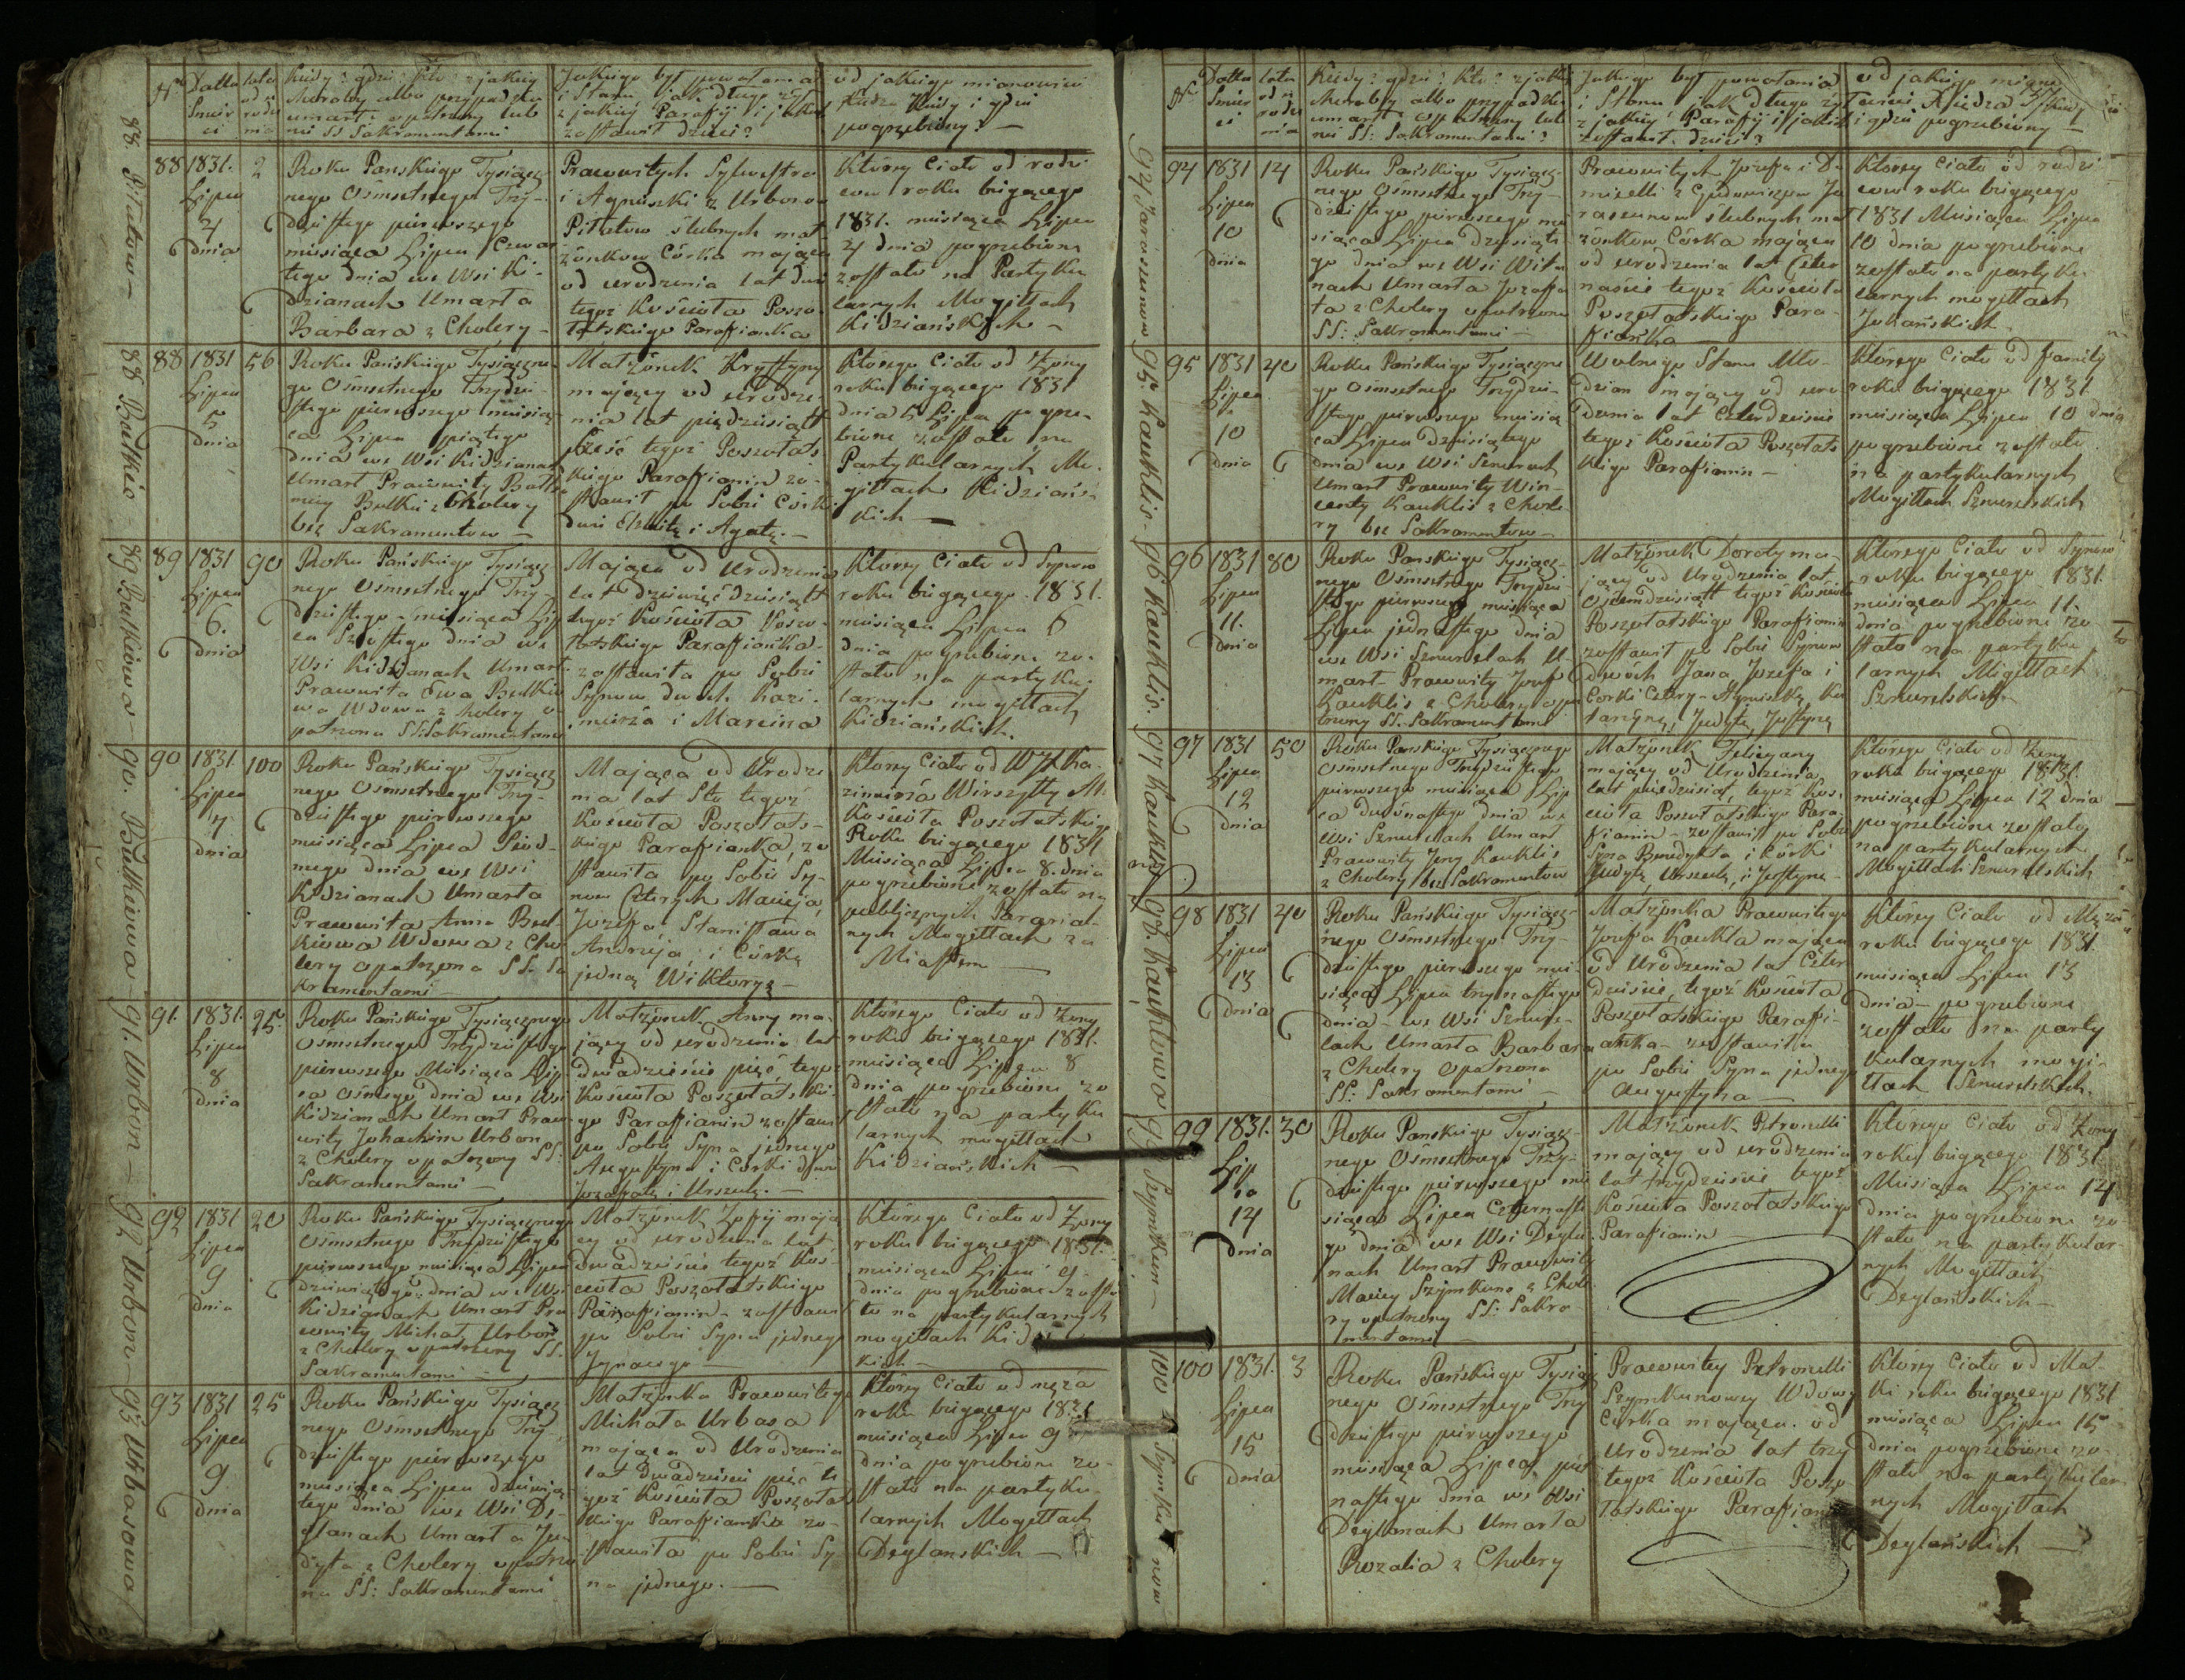 88 Pitatow —
88 Butkis
89 Butkiowa —
90. Butkiowa —
91. Urbon —
92 Urbon —
93 Urbasowa
N.
Datta
Smier
ci
lata
od u
rodze
nia
Kiedy? gdzie? Kto? z jakiey
Choroby albo przypadku
umarł? opatrzony lub
nie SS Sakramentami
Jakiego był powołania
i Stanu jak długo żył
z jakiey Parafij i jakie
zostawił dzieci?
od jakiego mianowicie
Xiędza kiedy i gdzie
pogrzebiony? —
88
1831.
Lipca
4
dnia
2
Roku Panskiego Tysiącz
nego Osmsetnego Trzy-
dziestego pierwszego
miesiąca Lipca Czwar
tego dnia we Wsi Ki-
dzianach Umarła
Barbara z Cholery —
Pracowitych Sylwestra
i Agnieszki z Urbonow
Pitatow slubnych mał
żonkow Córka mająca
od urodzenia lat dwie
tegoż Kościoła Poszo-
łatskiego Parafianka
Ktorey Ciało od rodzi
cow roku bieżącego
1831. miesiąca Lipca
4 dnia pogrzebione
zostało na Partyku
larnych Mogiłłach
Kidziańskich —
88
1831
Lipca
5
dnia
56
Roku Pańskiego Tysiączne
go Osmsetnego Trzydzie
stego pierwszego miesią
ca Lipca piątego
dnia we Wsi Kidzianach
Umarł Pracowity
Butkis z Cholery
bez Sakramentow —
Małżonek Krystyny
mający od urodze-
nia lat pięćdziesiąt
sześć tegoż Poszołats
kiego Parafianin zo-
stawił po Sobie Córki
dwie Elżbietę i Agatę. —
Ktorego Ciało od Żony
roku bieżącego 1831
dnia 5 Lipca pogrze-
bione zostało na
Partykularnych Mo-
giłłach Kidziańs-
kich —
89
1831
Lipca
6.
dnia
90
Roku Pańskiego Tysiącz
nego Osmsetnego Trzy-
dziestego miesiąca Lip
ca Szostego dnia we
Wsi Kidzianach Umarł.
Pracowita Ewa Butkio
wa Wdowa z Cholery o
patrzona SS: Sakramentami
Mająca od Urodzenia
lat dziewięćdziesiąt
tegoż Kościoła Poszo-
łatskiego Parafianka.
zostawiła po Sobie
Synow dwoch Kazi-
mierza i Marcina
Ktorey Ciało od Synow
roku bieżącego 1831.
miesiąca Lipca 6
dnia pogrzebione zo-
stało na partyku-
larnych mogiłłach
Kidziańskich.
90
1831.
Lipca
7
dnia
100
Roku Pańskiego Tysiącz
nego Osmsetnego Trzy-
dziestego pierwszego
miesiąca Lipca Siod-
mego dnia we Wsi
Kidzianach Umarła
Pracowita Anna But-
kiowa Wdowa z Cho
lery opatrzona SS. Sa
kramentami —
Mająca od Urodze
nia lat Sto tegoż
Kościoła Poszołats-
kiego Parafianka, zo
stawiła po Sobie Sy-
now Czterych Macieja
Jozefa Stanisława
Andrzeja, i Córkę
jedną Wiktoryę —
Ktorey Ciało od WJX Ka-
zimierza Wirszyłły
Kościoła Poszołatskiego
Roku bieżącego 1831
Miesiąca Lipca 8. dnia
pogrzebione zostało na
publicznych Parafial-
nych Mogiłłach za
Miastem —
91.
1831.
Lipca
8
dnia
25.
Roku Pańskiego Tysiącznego
Osmsetnego Trzydziestego
pierwszego Miesiąca Lip
ca osmego dnia we Wsi
Kidzianach Umarł Praco-
wity Johachim Urbon
z Cholery opatrzony SS:
Sakramentami —
Małżonek Anny ma-
jący od urodzenia lat
dwadzieście pięć tegoż
Kościoła Poszołatskie-
go Parafianin zostawił
po Sobie Syna jednego
Augustyna i Córki dwie
Jozafatę i Urszulę. —
Ktorego Ciało od Żony
roku bieżącego 1831.
miesiąca Lipca 8
dnia pogrzebione zo
stało na partyku
larnych mogiłłach
Kidziańskich —
92
1831
Lipca
9
dnia
20
Roku Pańskiego Tysiącznego
Osmsetnego Trzydziestego
pierwszego miesiąca Lipca
dziewiątego dnia we Wsi
Kidzianach Umarł Pra
cowity Michał Urbon
z Cholery opatrzony SS.
Sakramentami —
Małżonek Zofij mają
cy od urodzenia lat
dwadzieście tegoż Koś-
cioła Poszołatskiego
Parafianin — zostawił
po Sobie Syna jednego
Jgnacego —
Ktorego Ciało od Żony
roku bieżącego 1831.
miesiąca Lipca 9.
dnia pogrzebione zosta
ło na partykularnych
mogiłłach
kich —
93
1831
Lipca
9
dnia
25
Roku Pańskiego Tysiącz
nego Osmsetnego Trzy
dziestego pierwszego
miesiąca Lipca dziewią
tego dnia we Wsi De-
glanach Umarła Ju
dyta z Cholery opatrzo
na SS: Sakramentami
Małżonka Pracowitego
Michała Urbasa
mająca od Urodzenia
lat dwadzieście pięć te
goż Kościoła Poszołats
kiego Parafianka zo-
stawiła po Sobie Sy-
na jednego. —
Ktorey Ciało od męża
roku bieżącego 1831
miesiąca Lipca 9
dnia pogrzebione zo-
stało na partyku-
larnych Mogiłłach
Deglanskich —
94 Jarasunow
95 Kauklis —
96 Kauklis.
97 Kauklis
98. Kauklowa
99 Szymkun —
100
N.
Datta
Smier
ci
lata
od u
rodze
nia
Kiedy? gdzie? Kto? z jakiey
Choroby albo przypadku
umarł? opatrzony lub
nie SS: Sakramentami?
Jakiego był powołania
i Stanu jak długo żył
z jakiey Parafij i jakie
zostawił dzieci?
od jakiego miano
wicie Xiędza Kiedy
i gdzie pogrzebiony —
94
1831
Lipca
10
dnia
14
Roku Pańskiego Tysiącz-
nego Osmsetnego Trzy-
dziestego pierwszego mie
siąca Lipca dziesiąte
go dnia we Wsi
nach Umarła Jozefa
ta z Cholery opatrzona
SS: Sakramentami —
Pracowitych Jozefa i
Ja
rasunow slubnych mał
żonkow Córka mająca
od urodzenia lat Czter
naście tegoż Kościoła
Poszołatskiego Para-
fianka
Ktorey Ciało od rodzi
cow roku bieżącego
1831 Miesiąca Lipca
10 dnia pogrzebione
zostało na partyku
larnych mogiłłach
95
1831
Lipca
10
dnia
40
Roku Pańskiego Tysiączne
go Osmsetnego Trzydzie-
stego pierwszego miesią
ca Lipca dziesiątego
dnia we Wsi
Umarł Pracowity Win-
centy Kauklis z Chole-
ry bez Sakramentow —
Wolnego Stanu Mło-
dzian mający od uro
dzenia lat Czterdzieście
tegoż Kościoła Poszołats
kiego Parafianin —
Ktorego Ciało od familij
roku bieżącego 1831
miesiąca Lipca 10 dnia
pogrzebione zostało
na partykularnych
Mogiłłach Sznurelskich
96
1831
Lipca
11.
dnia
80
Roku Panskiego Tysiącz-
nego Osmsetnego Trzydzie
stego pierwszego miesiąca
Lipca jednastego dnia
we Wsi Sznurelach U-
marł Pracowity Jozef
Kauklis z Cholery opa
trzony SS. Sakramentami
Małżonek Doroty ma-
jący od Urodzenia lat
Osiemdziesiąt tegoż Kościoła
Poszołatskiego Parafianin
zostawił po Sobie Synow
dwóch Jana Jozefa i
Corki Cztery — Agnieszkę Ka
tarżynę, Judytę, Justynę
Ktorego Ciało od Synow
roku bieżącego 1831.
miesiąca Lipca 11.
dnia pogrzebione zo
stało na partyku
larnych Mogiłłach
Sznurelskich
97
1831
Lipca
12
dnia
50
Roku Panskiego Tysiącznego
Osmsetnego Trzydziestego
pierwszego miesiąca Lip
ca dwónastego dnia we
Wsi Sznurelach Umarł
Pracowity Jerzy Kauklis
z Cholery bez Sakramentow
Małżonek Felicyany
mający od Urodzenia
lat pięćdziesiąt, tegoż Koś-
cioła Poszołatskiego Para
fianin — zostawił po Sobie
Syna Benedykta i Córki
Judytę, Urszulę, i Justynę —
Ktorego Ciało od Żony
roku bieżącego 1831.
miesiąca Lipca 12 dnia
pogrzebione zostało
na partykularnych
Mogiłłach Sznurelskich
98
1831
Lipca
13
dnia
40
Roku Pańskiego Tysiącz-
nego Osmsetnego Trzy-
dziestego pierwszego mie-
siąca Lipca trzynastego
dnia — we Wsi Sznure-
lach Umarła Barbara
z Cholery opatrzona
SS: Sakramentami —
Małżonka Pracowitego
Jozefa Kaukla mająca
od Urodzenia lat Czter
dzieście, tegoż Kościoła
Poszołatskiego Parafi-
anka — zostawiła
po Sobie Syna jednego
Augustyna —
Ktorey Ciało od Męża
roku bieżącego 1831
miesiąca Lipca 13
dnia — pogrzebione
zostało na party
kularnych mogi-
łłach Sznurelskich.
99
1831.
Lip
ca
14
dnia
30
Roku Panskiego Tysiącz-
nego Osmsetnego Trzy-
dziestego pierwszego mie
siąca Lipca Czternaste
go dnia we Wsi Degla-
nach Umarł Pracowity
Maciey Szymkuno z Chole
ry opatrzony SS: Sakra
mentami —
Małżonek Petronelli
mający od urodzenia
lat trzydzieście tegoż
Kościoła Poszołatskiego
Parafianin —
Ktorego Ciało od Żony
roku bieżącego 1831
Miesiąca Lipca 14
dnia pogrzebione zo-
stało na partykular-
nych Mogiłłach
Deglańskich —
100
1831.
Lipca
15
dnia
3
Roku Pańskiego Tysiącz
nego Osmsetnego Trzy
dziestego pierwszego
miesiąca Lipca pięt
nastego dnia we Wsi
Deglanach Umarła
Rozalia z Cholery
Pracowitey Petronelli
Szymkunowey Wdowy
Córka mająca od
Urodzenia lat trzy
tegoż Kościoła Poszo
łatskiego Parafianka
Ktorey Ciało od Mat-
ki roku bieżącego 1831
miesiąca Lipca 15
dnia pogrzebione zo-
stało na partykular
nych Mogiłłach
Deglańskich —